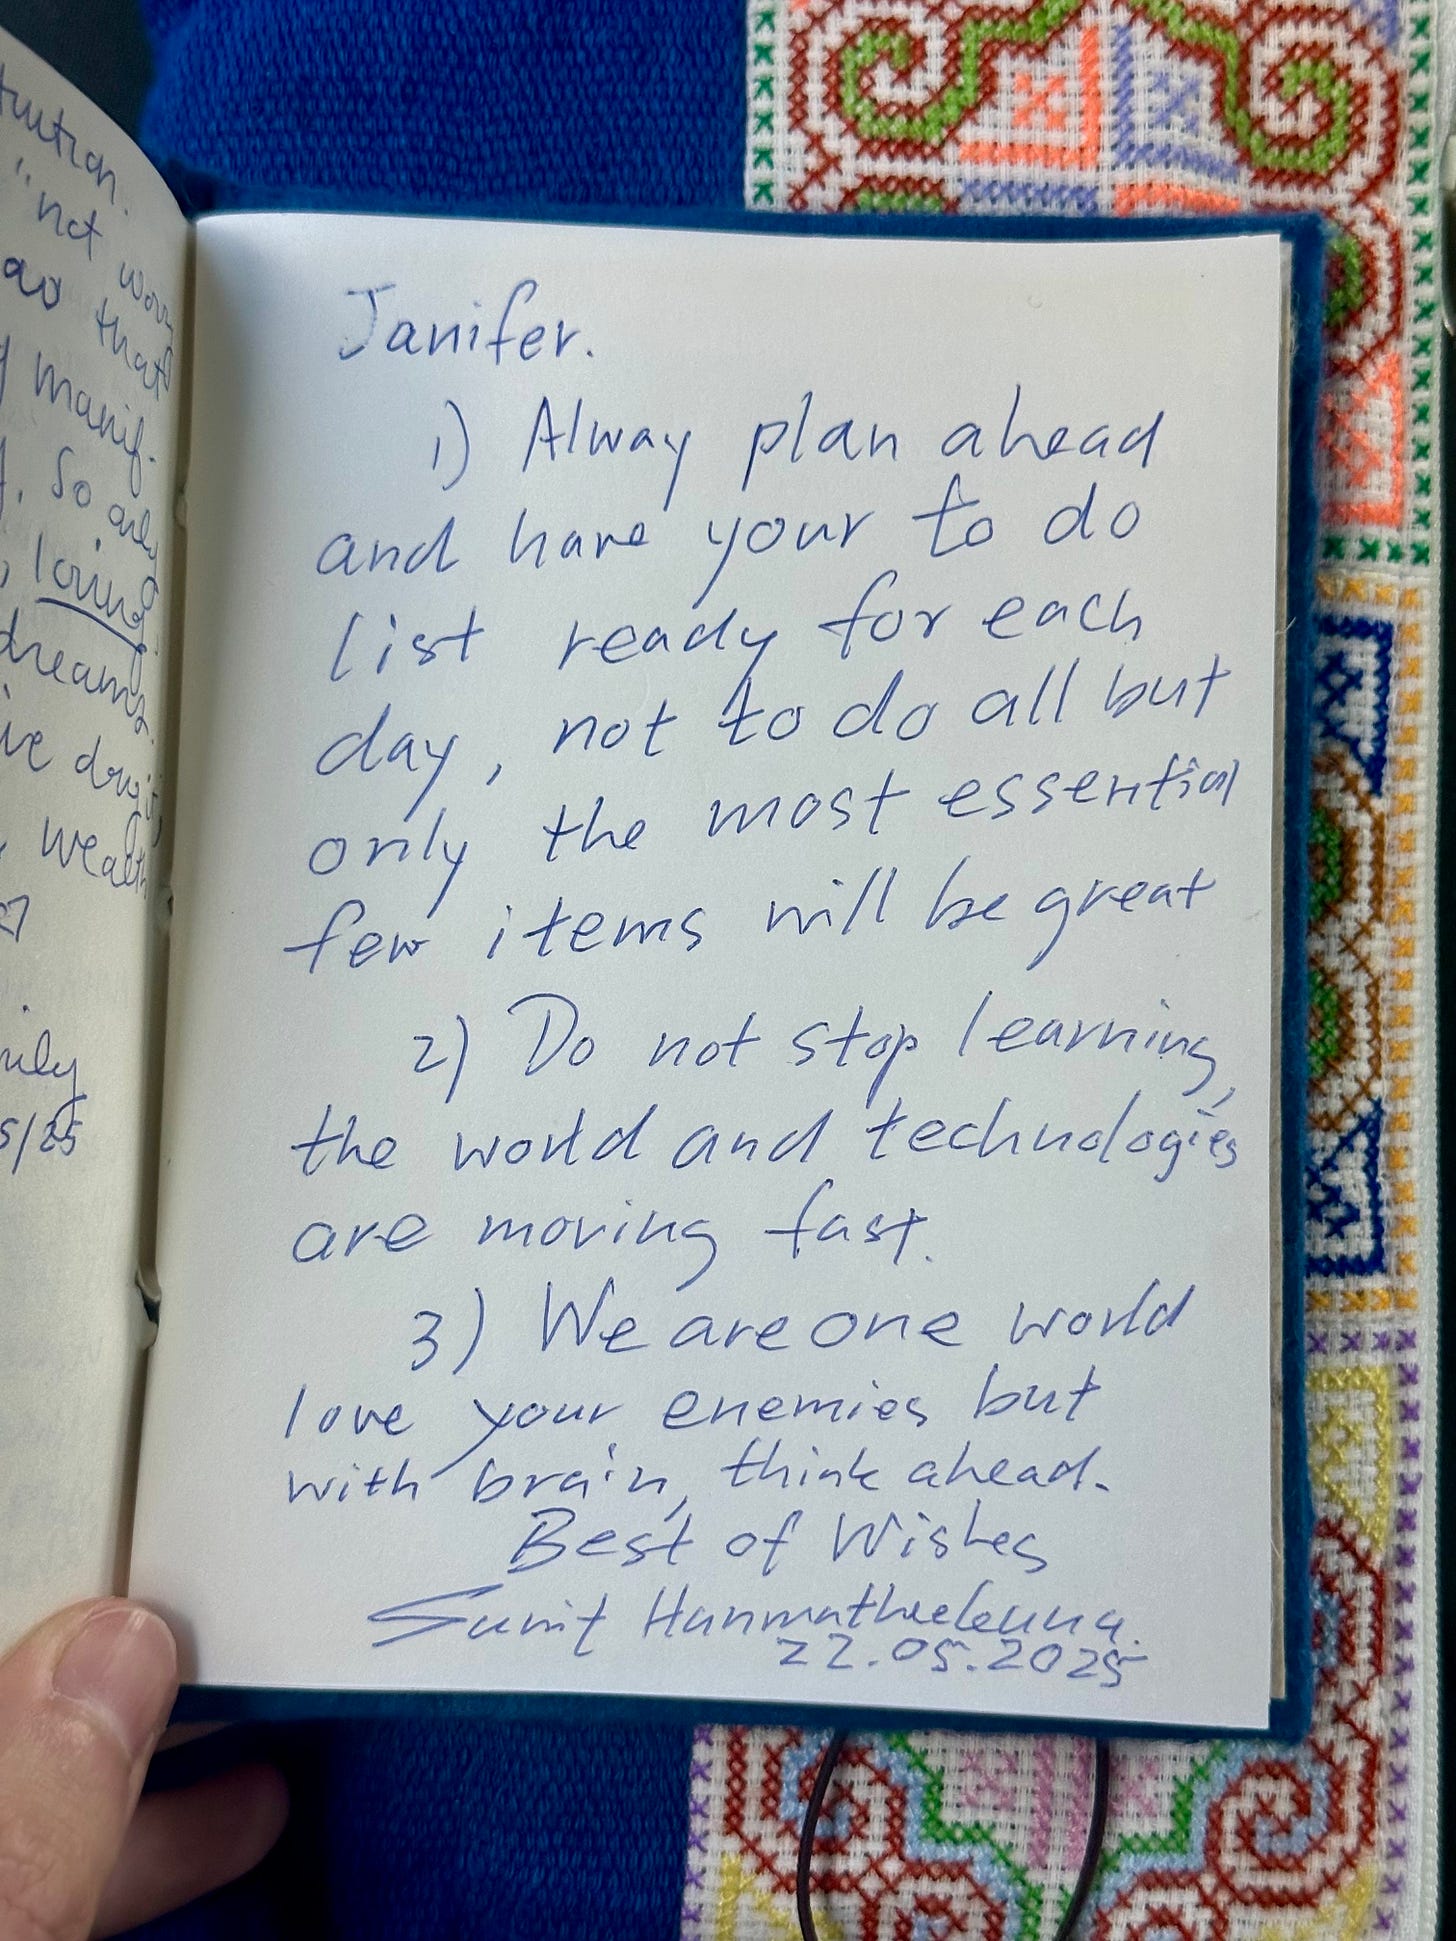 tution.
"not worry
ao that
manif.
. So only
, loving
dreams.
ive
, wealth
ily
5/25
Janifer.
1) Alway plan ahead
and have your to do
list ready for each
day, not to do all but
only the most essential
few items will be great
2) Do not stop learning,
the world and technologies
are moving fast.
3) We are one world
love your enemies but
with brain, think ahead.
Best of Wishes
Sumit
22.05.2025